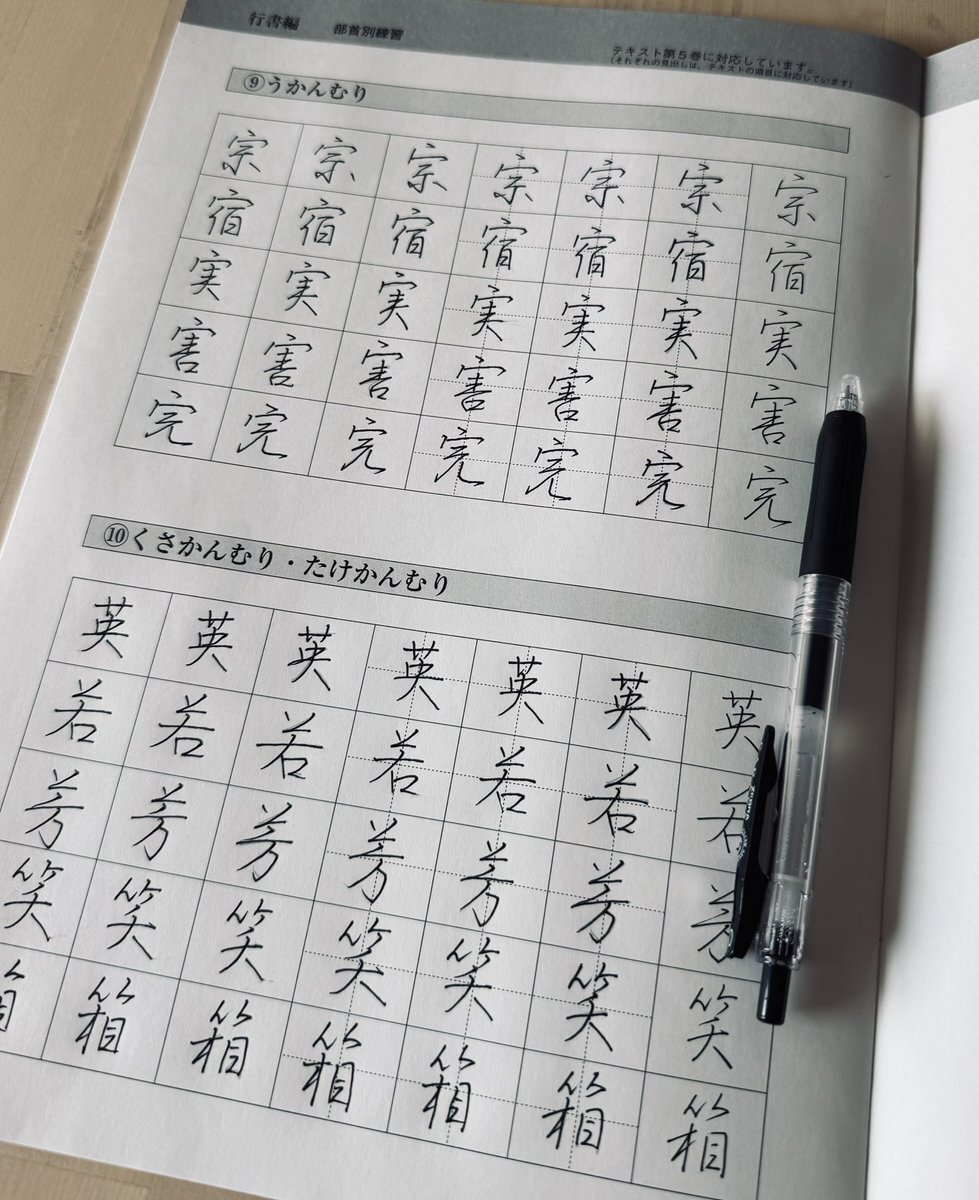 行書編 部首別練習
テキスト第5巻に対応しています。
(それぞれの見出しは、テキストの項目に対応しています)
⑨うかんむり
宗 宗 宗 宗 宗 宗 宗
宿 宿 宿 宿 宿 宿 宿
実 実 実 実 実 実 実
害 害 害 害 害 害 害
完 完 完 完 完 完 完
⑩くさかんむり・たけかんむり
英 英 英 英 英 英 英
若 若 若 若 若 若 若
芳 芳 芳 芳 芳 芳 芳
笑 笑 笑 笑 笑 笑 笑
箱 箱 箱 箱 箱 箱 箱